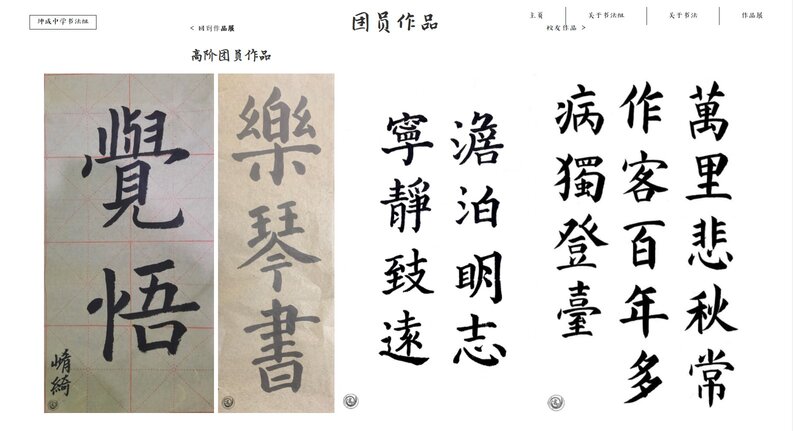 坤成中学书法组
< 回到作品展
团员作品
主页
关于书法组
关于书法
作品展
校友作品 >
高阶团员作品
覺悟
樂琴書
澹泊明志
寧靜致遠
萬里悲秋常
作客百年多
病獨登臺